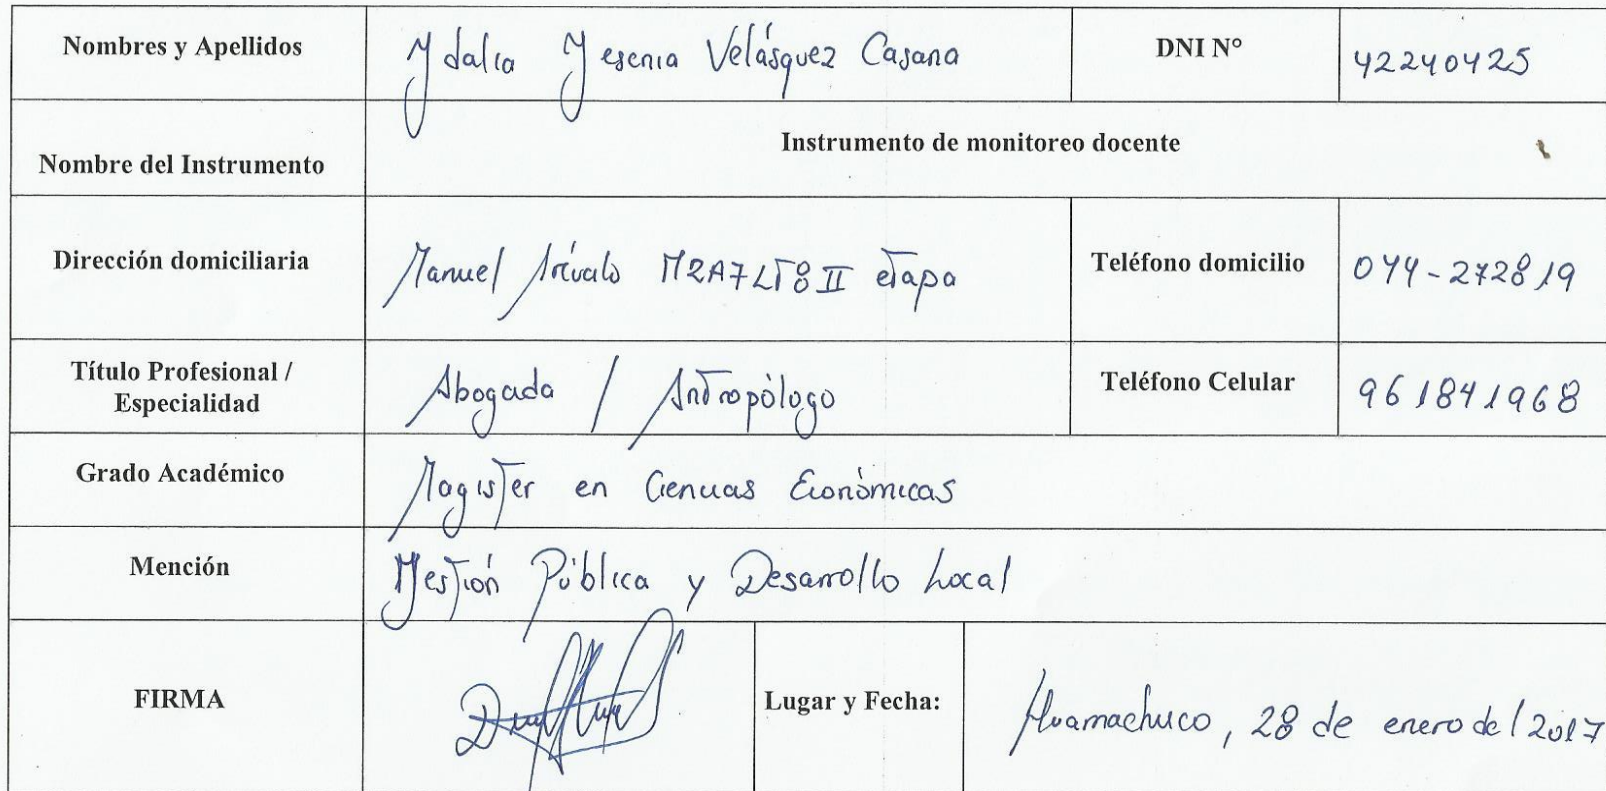 Nombres y Apellidos Ydalia Yesenia Velásquez Casana DNI N° 42240425
Nombre del Instrumento Instrumento de monitoreo docente
Dirección domiciliaria Manuel Arévalo MZA7LT8 II etapa Teléfono domicilio 044-272819
Título Profesional /
Especialidad Abogada / Antropólogo Teléfono Celular 961841968
Grado Académico Magister en Ciencias Económicas
Mención Gestión Pública y Desarrollo Local
FIRMA Lugar y Fecha: Huamachuco, 28 de enero del 2017